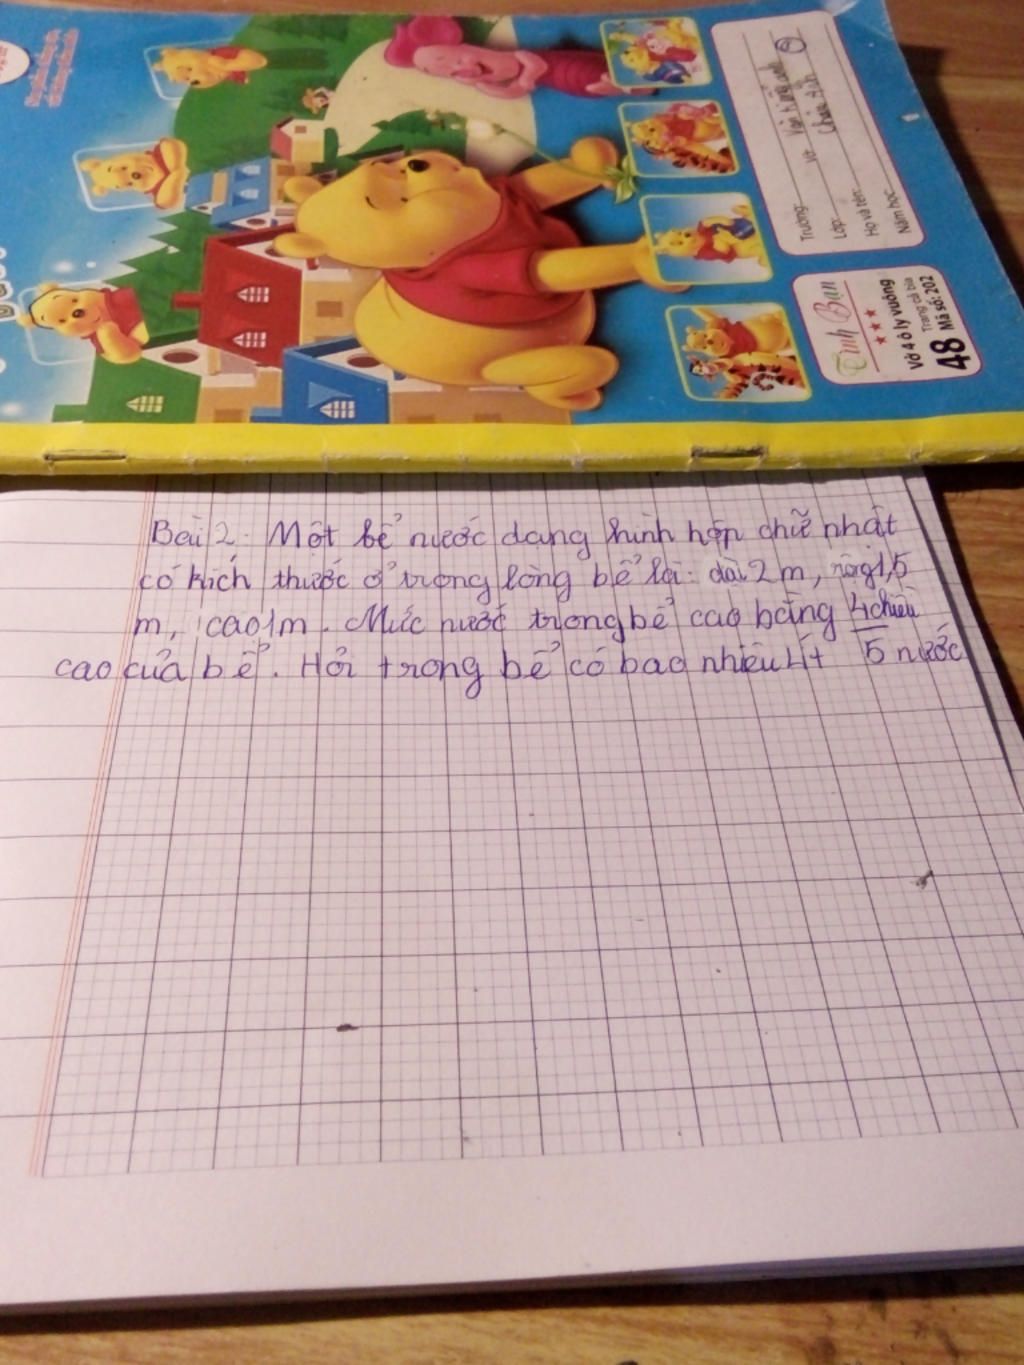 Trường:
Lớp:
Họ và tên:
Năm học:
Tình Bạn
Vở 4 ô ly vuông
48 Trang cả bìa
Mã số: 202
Bài 2: Một bể nước dạng hình hộp chữ nhật
có kích thước ở trong lòng bể là: dài 2 m, rộng 1,5
m, cao 1m. Mức nước trong bể cao bằng 4/5 chiều
cao của bể. Hỏi trong bể có bao nhiêu lít nước